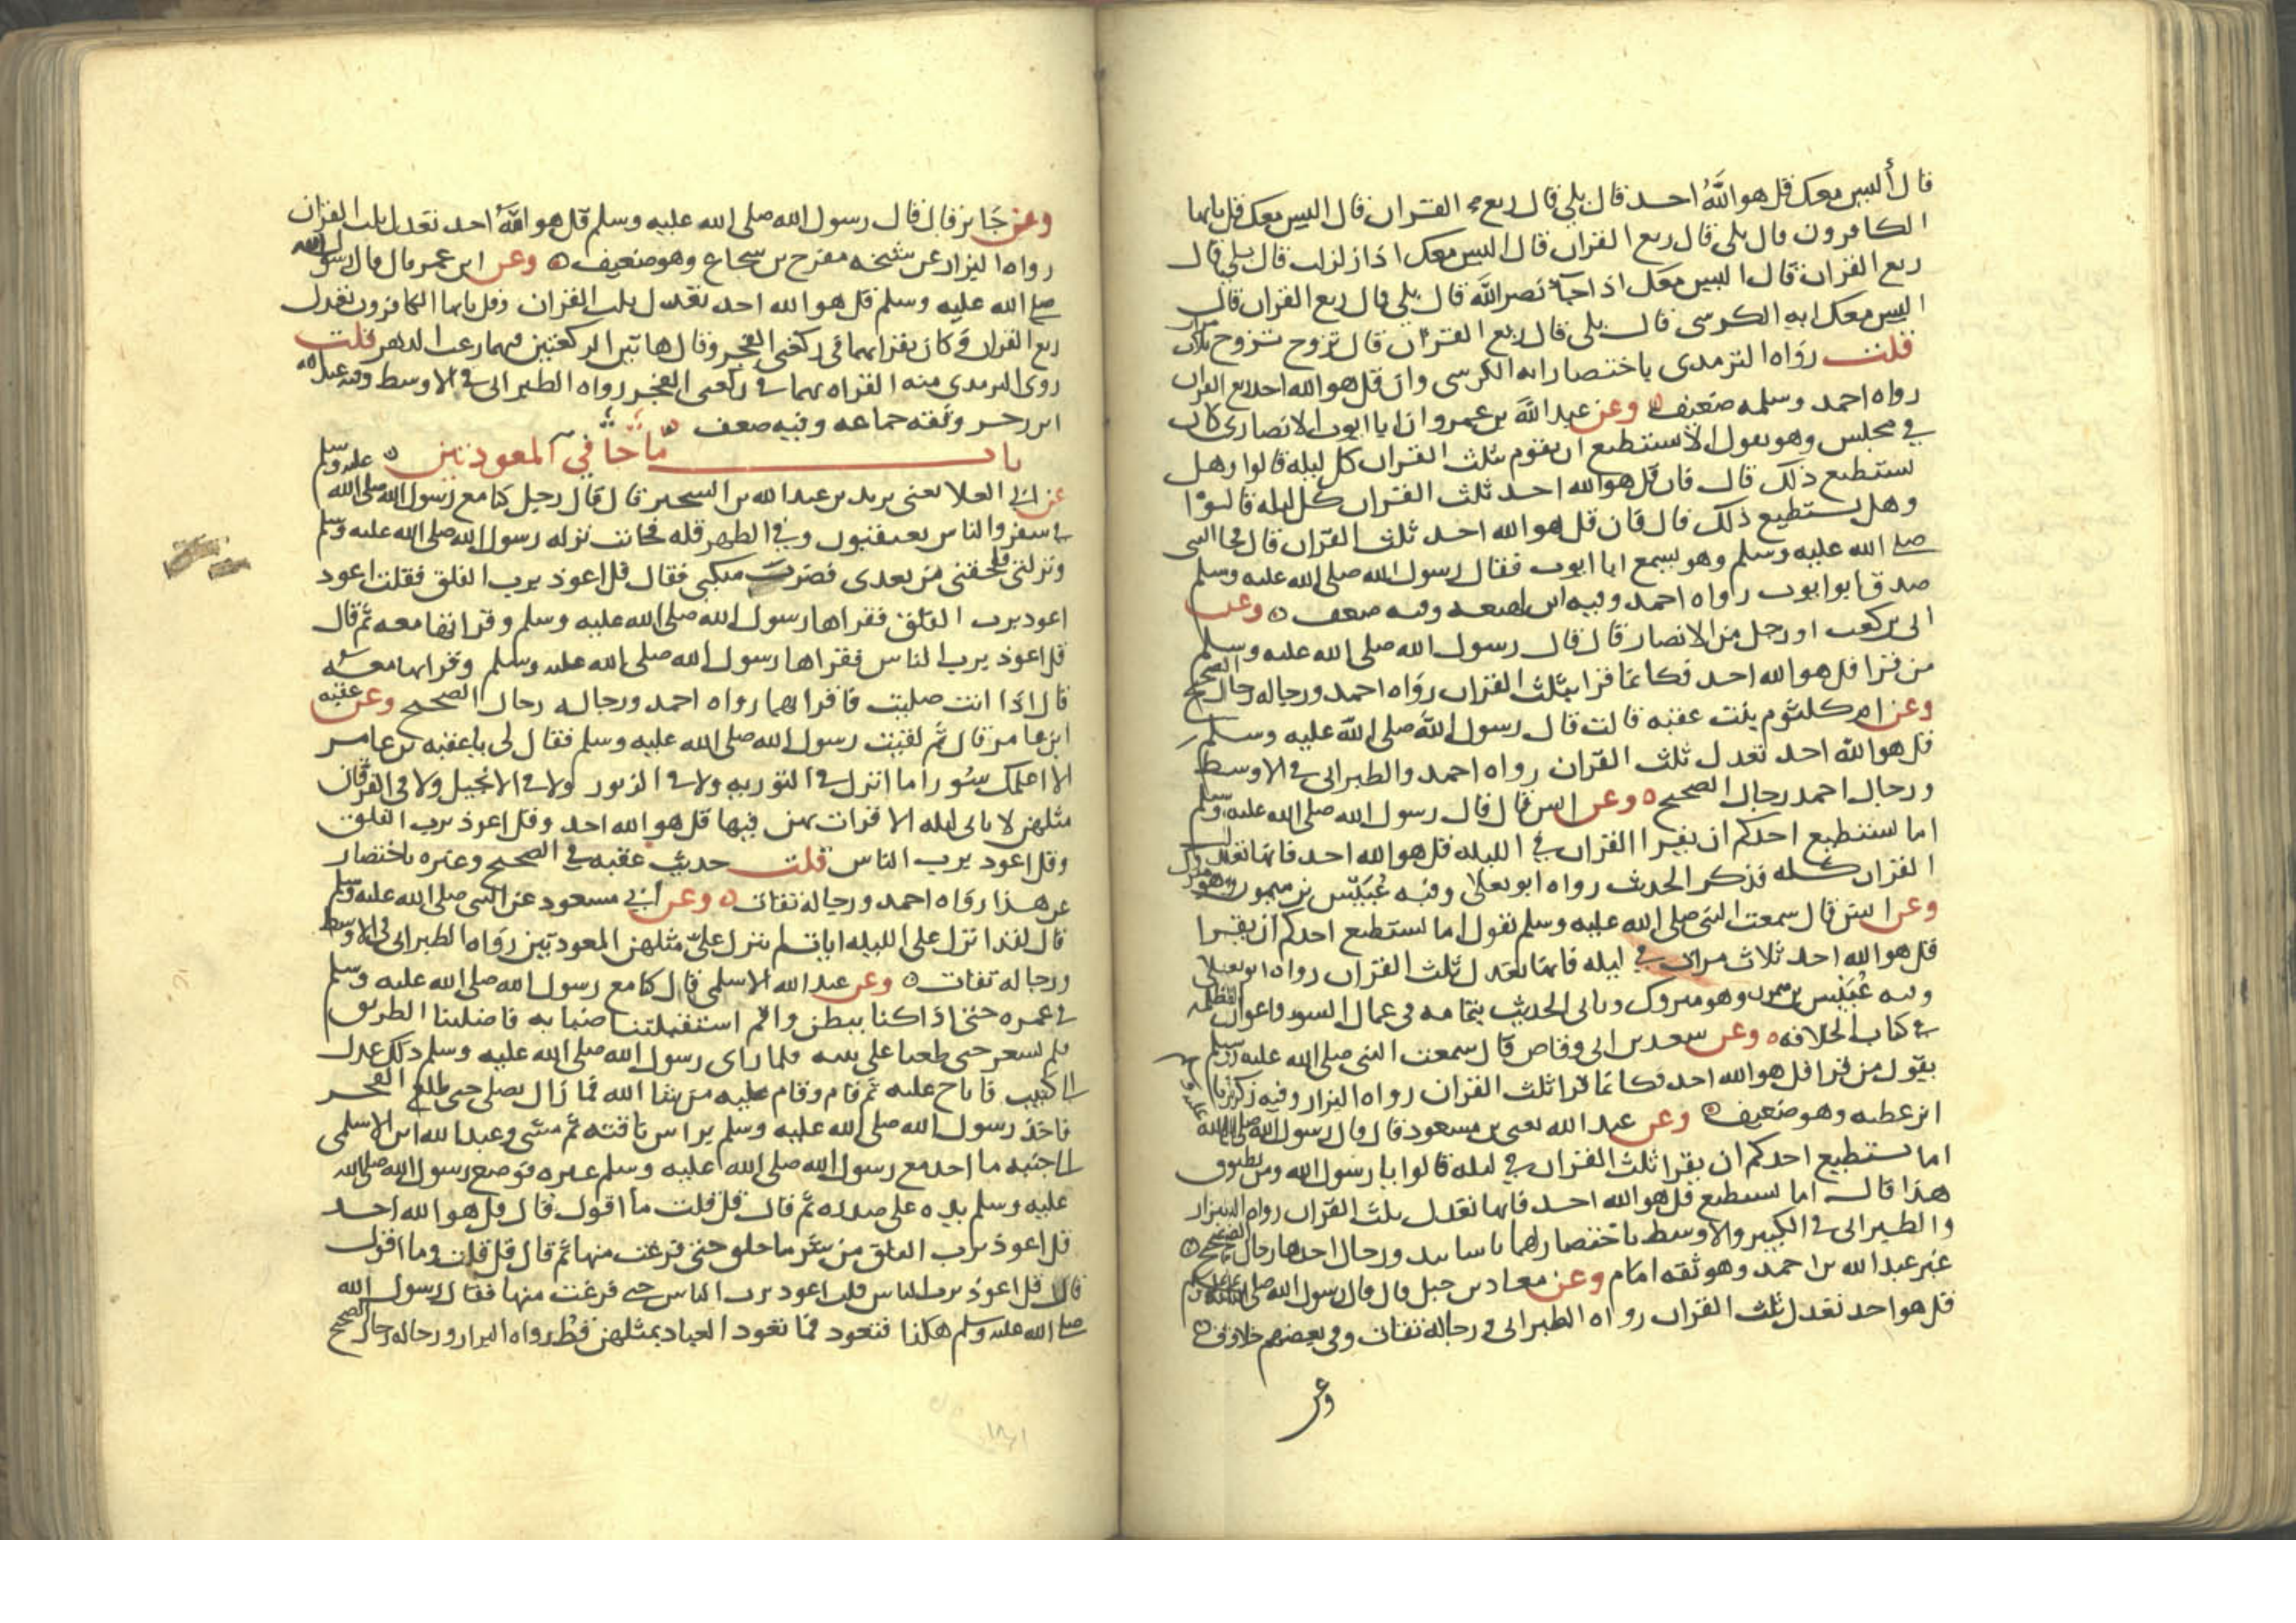 قال أليس معك قل هو الله احد قال بلي قال ربع القران قال اليس معك قل يايها
الكافرون قال بلى قال ربع القران قال اليس معك اذا زلزلت قال بلي قال
ربع القران قال اليس معك اذا جآء نصر الله قال بلي قال ربع القران قال
اليس معك ايه الكرسى قال بلى قال ربع القران قال تزوج تزوج تزوج
قلت رواه الترمدى باختصار ايه الكرسى وان قل هو الله احد ربع القران
رواه احمد وسلمه ضعيف وعن عبد الله بن عمرو ان ابا ايوب الانصارى كان
في مجلس وهو يقول الا يستطيع ان يقوم بثلث القران كل ليله قالوا وهل
نستطيع ذلك قال فان قل هو الله احد ثلث القران كل ليله قالوا
وهل يستطيع ذلك قال فان قل هو الله احد ثلث القران قال فجا النبي
صلى الله عليه وسلم وهو يسمع ابا ايوب فقال رسول الله صلى الله عليه وسلم
صدق ابو ايوب رواه احمد وفيه ابن لهيعه وفيه ضعف وعن
ابى بن كعب او رجل من الانصار قال قال رسول الله صلى الله عليه وسلم
من قرا قل هو الله احد فكانما قرا بثلث القران رواه احمد ورجاله رجال الصحيح
وعن ام كلثوم بنت عقبه قالت قال رسول الله صلى الله عليه وسلم
قل هو الله احد تعدل ثلث القران رواه احمد والطبرانى في الاوسط
ورجال احمد رجال الصحيح وعن انس قال قال رسول الله صلى الله عليه وسلم
اما يستطيع احدكم ان يقرا القران في الليله قل هو الله احد فانها تعدل
القران كله فذكر الحديث رواه ابو يعلى وفيه عبيس بن ميمون وهو متروك
وعن انس قال سمعت النبي صلى الله عليه وسلم يقول اما يستطيع احدكم ان يقرا
قل هو الله احد ثلاث مرات في ليله فانها تعدل ثلث القران رواه ابو يعلى
وفيه عبيس بن ميمون وهو متروك وياتى الحديث بتمامه في عمال السوء واعوان الظلمه
في كتاب الخلافه وعن سعد بن ابى وقاص قال سمعت النبي صلى الله عليه وسلم
يقول من قرا قل هو الله احد فكانما قرا ثلث القران رواه البزار وفيه زكريا
ابن عطيه وهو ضعيف وعن عبد الله يعنى بن مسعود قال قال رسول الله صلى الله عليه وسلم
اما يستطيع احدكم ان يقرا ثلث القران في ليله قالوا يا رسول الله ومن يطيق
هذا قال اما يستطيع قل هو الله احد فانها تعدل ثلث القران رواه البزار
والطبرانى في الكبير والاوسط باختصار لهما باسانيد ورجال احدها رجال الصحيح
غير عبد الله بن احمد وهو ثقه امام وعن معاد بن جبل قال قال رسول الله صلى الله عليه وسلم
قل هو احد تعدل ثلث القران رواه الطبرانى ورجاله ثقات وفي بعضهم خلاف
وعن
وعن جابر قال قال رسول الله صلى الله عليه وسلم قل هو الله احد تعدل ثلث القران
رواه البزار عن شيخه مفرح بن شجاع وهو ضعيف وعن ابن عمر قال قال رسول الله
صلى الله عليه وسلم قل هو الله احد تعدل ثلث القران وقل يايها الكافرون تعدل
ربع القران وكان يقرا بهما في ركعتى الفجر وقال هاتين الركعتين فيهما رغب الدهر قلت
روى الترمدى منه القراه بهما في ركعتى الفجر رواه الطبرانى في الاوسط وفيه عبيد الله
ابن زحر وثقه جماعه وفيه ضعف
باب ما جا في المعوذتين
عن ابي العلا يعنى يزيد بن عبد الله بن الشخير قال قال رجل كنا مع رسول الله صلى الله عليه وسلم
في سفر والناس يعتقبون وفي الظهر قله فحانت نزله رسول الله صلى الله عليه وسلم
ونزلتى فلحقنى من بعدى فضرب منكبى فقال قل اعوذ برب الفلق فقلت اعود
اعود برب الفلق فقراها رسول الله صلى الله عليه وسلم وقراتها معه ثم قال
قل اعوذ برب الناس فقراها رسول الله صلى الله عليه وسلم وقراتها معه
قال اذا انت صليت فاقرا بهما رواه احمد ورجاله رجال الصحيح وعن عقبه
ابن عامر قال ثم لقيت رسول الله صلى الله عليه وسلم فقال لى يا عقبه بن عامر
الا اعلمك سورا ما انزل في التوريه ولا في الزبور ولا في الانجيل ولا في الفرقان
مثلهن لا ياتى ليله الا قرات بهن فيها قل هو الله احد وقل اعوذ برب الفلق
وقل اعود برب الناس قلت حديث عقبه في الصحيح وغيره باختصار
عن هذا رواه احمد ورجاله ثقات وعن ابي مسعود عن النبى صلى الله عليه وسلم
قال لقد انزل على الليله ايات لم ينزل علي مثلهن المعوذتين رواه الطبرانى في الاوسط
ورجاله ثقات وعن عبد الله الاسلمى قال كنا مع رسول الله صلى الله عليه وسلم
في عمره حتى اذا كنا ببطن واقم استقبلتنا ضبابه فاضلتنا الطريق
فلم نشعر حتى طلعنا على ثنيه فلما راى رسول الله صلى الله عليه وسلم ذلك عدل
الى كثيب فاناخ عليه ثم قام وقام عليه من شا الله فما زال يصلى حتى طلع الفجر
فاخذ رسول الله صلى الله عليه وسلم براس ناقته ثم مشى وعبد الله ابن الاسلمى
الى جنبه ما احد مع رسول الله صلى الله عليه وسلم غيره فوضع رسول الله صلى الله
عليه وسلم يده على صدره ثم قال قل قلت ما اقول قال قل هو الله احد
قل اعوذ برب الفلق من شر ما خلق حتى فرغت منها ثم قال قل قلت وما اقول
قال قل اعوذ برب الناس قلت اعود برب الناس حتى فرغت منها فقال رسول الله
صلى الله عليه وسلم هكذا فتعود فما تعود العباد بمثلهن قط رواه البزار ورجاله رجال الصحيح